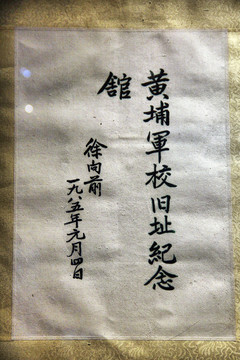 黃埔軍校旧址紀念
舘
徐向前
一九八五年元月四日